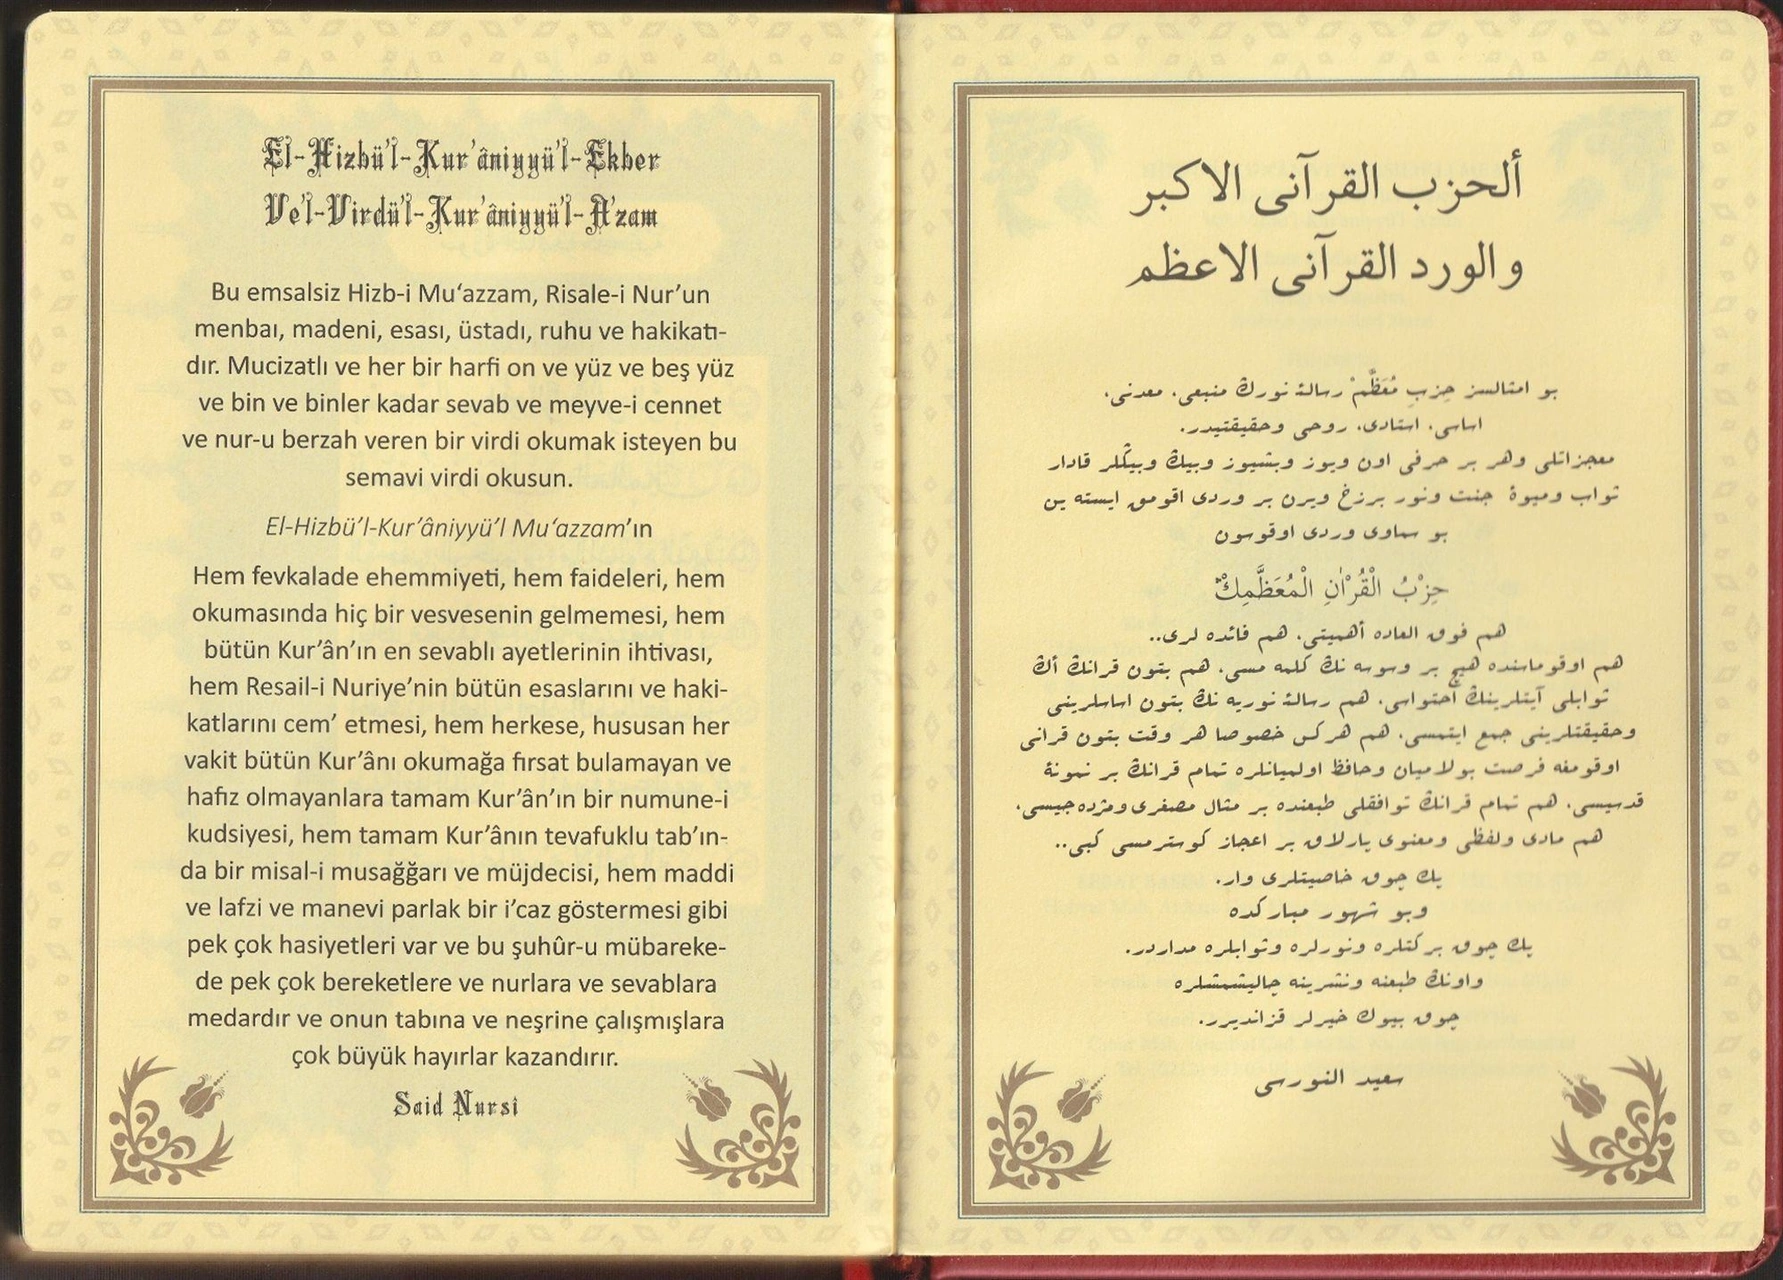 El-Hizbü'l-Kur'âniyyü'l-Ekber
Ve'l-Virdü'l-Kur'âniyyü'l-A'zam
Bu emsalsiz Hizb-i Mu‘azzam, Risale-i Nur’un
menbaı, madeni, esası, üstadı, ruhu ve hakikatı-
dır. Mucizatlı ve her bir harfi on ve yüz ve beş yüz
ve bin ve binler kadar sevab ve meyve-i cennet
ve nur-u berzah veren bir virdi okumak isteyen bu
semavi virdi okusun.
El-Hizbü’l-Kur’âniyyü’l Mu‘azzam’ın
Hem fevkalade ehemmiyeti, hem faideleri, hem
okumasında hiç bir vesvesenin gelmemesi, hem
bütün Kur’ân’ın en sevablı ayetlerinin ihtivası,
hem Resail-i Nuriye’nin bütün esaslarını ve haki-
katlarını cem’ etmesi, hem herkese, hususan her
vakit bütün Kur’ânı okumağa fırsat bulamayan ve
hafız olmayanlara tamam Kur’ân’ın bir numune-i
kudsiyesi, hem tamam Kur’ânın tevafuklu tab’ın-
da bir misal-i musağğarı ve müjdecisi, hem maddi
ve lafzi ve manevi parlak bir i’caz göstermesi gibi
pek çok hasiyetleri var ve bu şuhûr-u mübareke-
de pek çok bereketlere ve nurlara ve sevablara
medardır ve onun tabına ve neşrine çalışmışlara
çok büyük hayırlar kazandırır.
Said Nursi
ألحزب القرآنى الاكبر
والورد القرآنى الاعظم
بو امثالسز حِزبِ مُعَظَّمْ رسالۀ نورك منبعى، معدنى،
اساسى، استادى، روحى وحقيقتيدر.
معجزاتلى وهر بر حرفى اون ويوز وبشيوز وبيڭ وبيڭلر قادار
ثواب وميوۀ جنت ونور برزخ ويرن بر وردى اقومق ايسته ين
بو سماوى وردى اوقوسون
حِزْبُ الْقُرْاٰنِ الْمُعَظَّمِكْ
هم فوق العاده أهميتى، هم فائده لرى..
هم اوقوماسنده هيچ بر وسوسه نڭ كلمه مسى، هم بتون قرانڭ أڭ
ثوابلى آيتلرينڭ احتواسى، هم رسالۀ نوريه نڭ بتون اساسلرينى
وحقيقتلرينى جمع ايتمسى، هم هركس خصوصا هر وقت بتون قرانى
اوقومغه فرصت بولاميان وحافظ اولميانلره تمام قرانڭ بر نمونۀ
قدسيسى، هم تمام قرانڭ توافقلى طبعنده بر مثال مصغرى ومژده جيسى،
هم مادى ولفظى ومعنوى پارلاق بر اعجاز كوسترمسى كبى..
پك چوق خاصيتلرى وار.
وبو شهور مباركده
پك چوق بركتلره ونورلره وثوابلره مداردر.
واونڭ طبعنه ونشرينه چاليشمشلره
چوق بيوك خيرلر قزانديرر.
سعيد النورسى